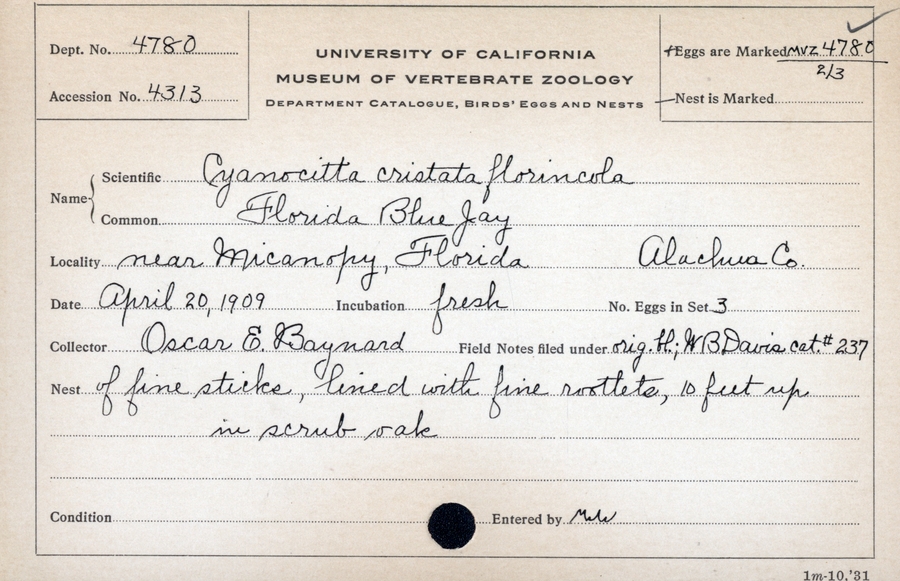 Dept. No. 4780
Accession No. 4313
UNIVERSITY OF CALIFORNIA
MUSEUM OF VERTEBRATE ZOOLOGY
DEPARTMENT CATALOGUE, BIRDS' EGGS AND NESTS
Eggs are Marked MVZ 4780
2/3
Nest is Marked
Name
Scientific Cyanocitta cristata florincola
Common Florida Blue Jay
Locality near Micanopy, Florida Alachua Co.
Date April 20, 1909 Incubation fresh No. Eggs in Set 3
Collector Oscar E. Baynard Field Notes filed under orig. W B Davis cat. # 237
Nest of fine sticks, lined with fine rootlets, 10 feet up
in scrub oak
Condition Entered by
1m-10,'31